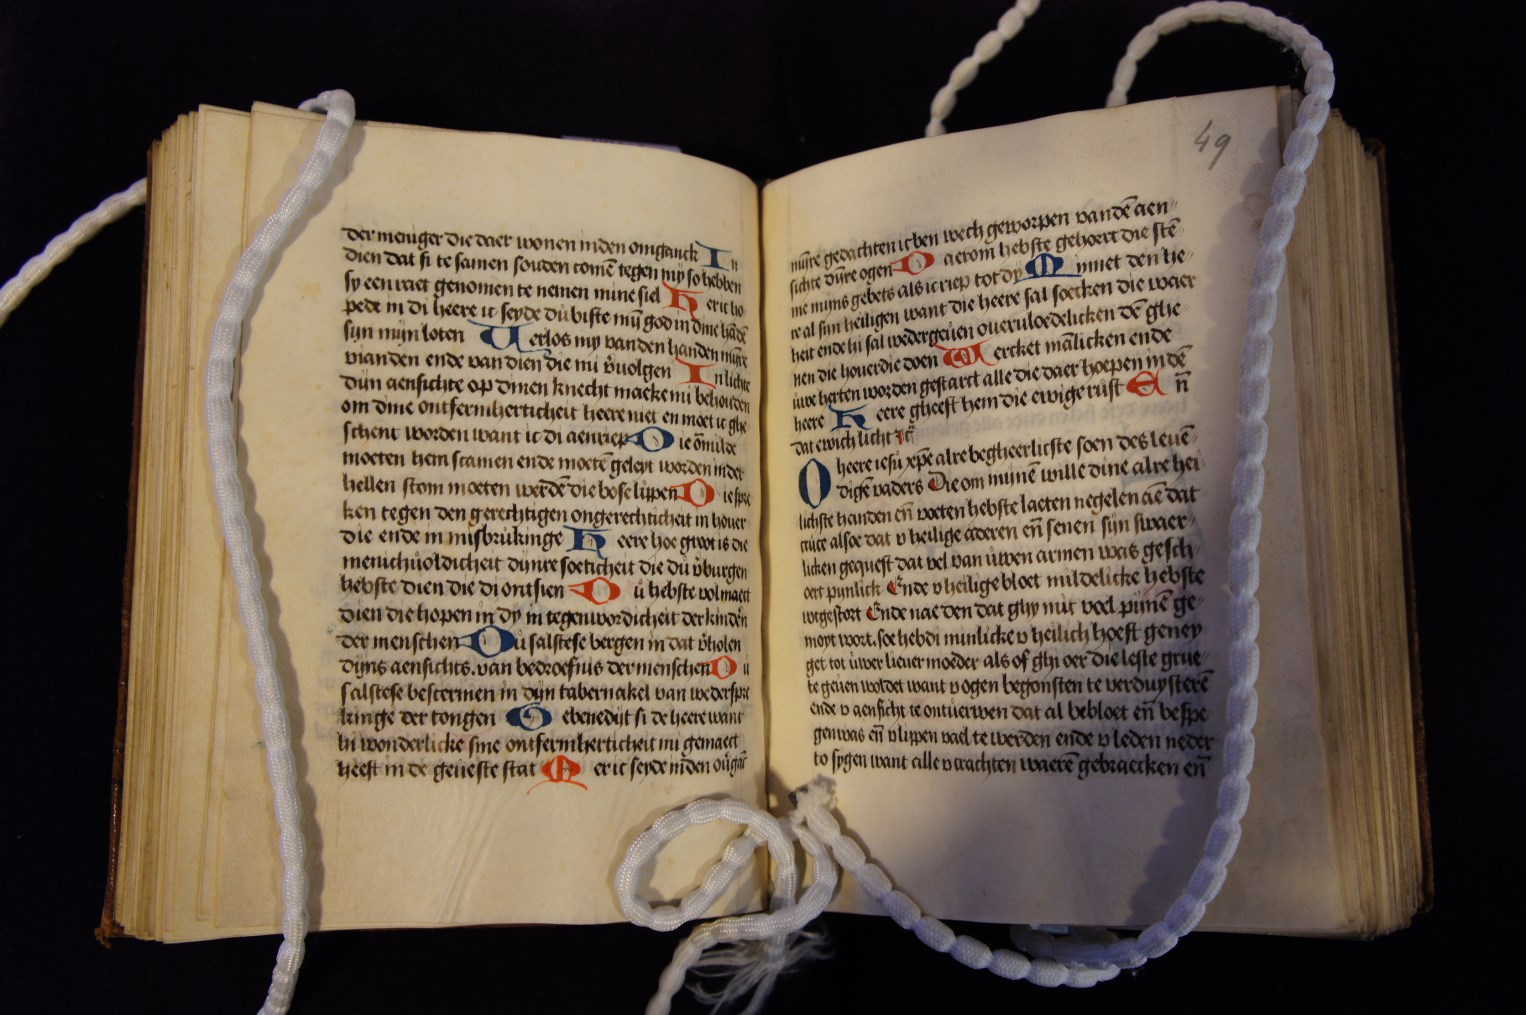 der meniger die daer wonen inden omganck In
dien dat si te samen souden comē tegen my so hebben
sy een raet genomen te nemen mine siel Her ic ho
pede in di heere ic seyde du biste mijn god in dine hāde
sijn mijn loten Verlos my vanden handen mijnre
vianden ende van dien die mi v̄uolgen In lichte
dijn aensichte op dinen knecht maeke mi behouden
om dine ontfermherticheit heere niet en moet ic ghe
schent worden want ic di aenriep Die ōmilde
moeten hem scamen ende moetē geleyt worden in der
hellen stom moeten werdē die bose lippen Die spre
ken tegen den gerechtigen ongerechticheit in houer
die ende in misbrukinge Heere hoe groot is die
menichuoldicheit dijnre soeticheit die du v̄burgen
hebste dien die di ontsien Dū hebste volmaect
dien die hopen in dy in tegenwordicheit der kindē
der menschen Du salstese bergen in dat v̄holen
dijns aensichts. van bedroefnis der menschen Du
salstese bescermen in dijn tabernakel van wederspre
kinge der tongen Gebenedijt si de heere want
hi wonderlicke sine ontfermherticheit mi gemaect
heeft in de geueste stat Mer ic seyde inden ou̅gāc
49
mijnre gedachten ic ben wech geworpen van dē aen
sichte dijnre ogen Daerom hebste gehoert die stē
me mijns gebets als ic riep tot dy Minnet den he
re al sijn heiligen want die heere sal soecken die waer
heit ende hi sal wedergeuen oueruloedelicken dē ghe
nen die houerdie doen Wercket mālicken ende
uwe herten worden gestarct alle die daer hoepen in dē
heere Heere gheeft hem die ewige rust En̄
dat ewich licht
O heere iesu xp̄e alre begheerlicste soen des leuē
digē vaders Die om mijnē wille dine alre hei
lichste handen en̄ voeten hebste laeten negelen aē dat
cruce alsoe dat v heilige aderen en̄ senen sijn swaer
licken gequest dat vel van uwen armen was gesch
oert pynlick Ende v heilige bloet mildelicke hebste
wtgestort Ende nae den dat ghy mit veel pijnē ge
moyt wort. soe hebdi minlicke v heilich hoeft geney
get tot uwer lieuer moeder als of ghi oer die leste grue
te geuen woldet want v ogen begonsten te verduysterē
ende v aensicht te ontuerwen dat al bebloet en̄ bespe
gen was en̄ v lippen vael te werden ende v leden neder
to sygen want alle v crachten waerē gebraecken en̄